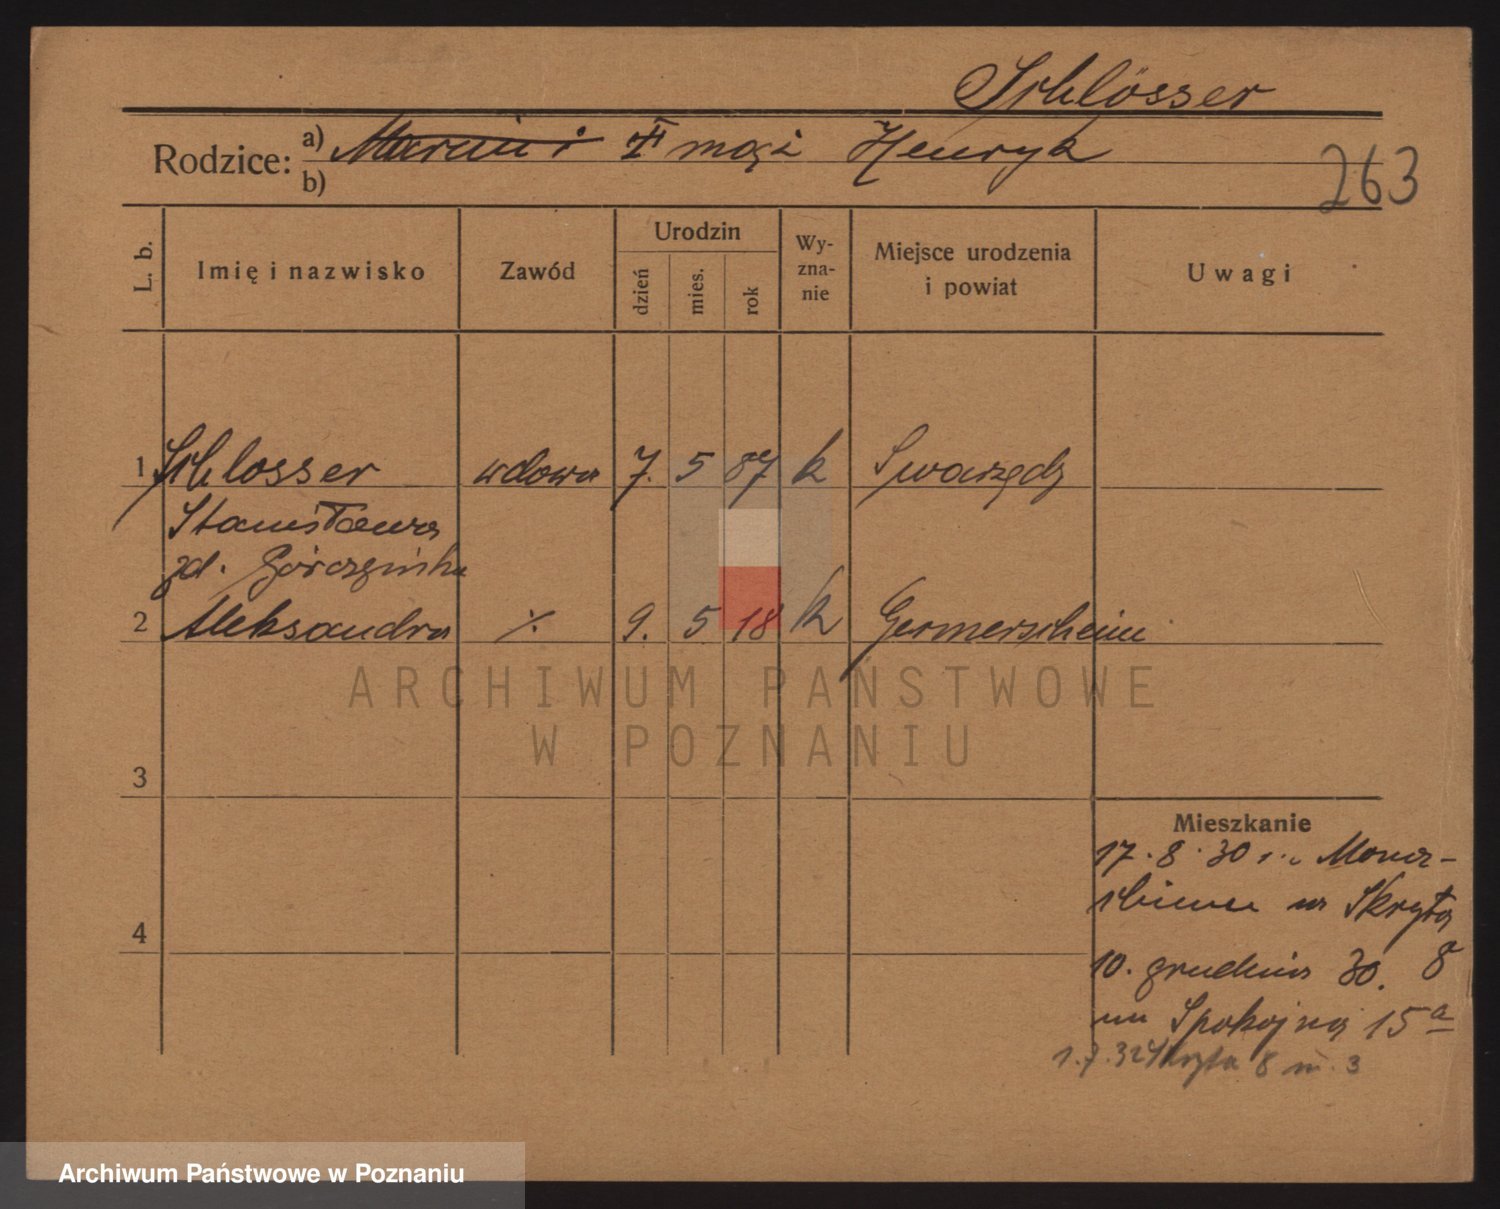 Schlösser
Rodzice: a) Marcin i II mąż Henryk
b)
263
L. b.
Imię i nazwisko
Zawód
Urodzin
dzień
mies.
rok
Wy-
zna-
nie
Miejsce urodzenia
i powiat
Uwagi
1 Schlosser wdowa 7. 5 87 k Swarzędz
Stanisława
zd. Górczyńska
2 Aleksandra ./. 9. 5 18 k Germersheim
3
4
Mieszkanie
17.8.30
na Skrytą
8
10. grudnia 30.
na Spokojną 15a
1.7.32 Skryta 8 m. 3
ARCHIWUM PAŃSTWOWE
W POZNANIU
Archiwum Państwowe w Poznaniu